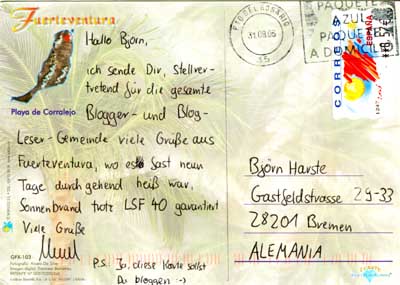 Fuerteventura
Playa de Corralejo
Hallo Björn,
ich sende Dir, stellver-
tretend für die gesamte
Blogger- und Blog-
Leser-Gemeinde viele Grüße aus
Fuerteventura, wo es fast neun
Tage durchgehend heiß war,
Sonnenbrand trotz LSF 40 garantiert
Viele Grüße
P.S. Ja, diese Karte sollst
Du bloggen :-)
GFX-103
31.08.06
PAQUETE
AZUL
PAQUETE
A DOMICILIO
CORREOS
ESPAÑA
Björn Harste
Gastfeldstrasse 29-33
28201 Bremen
ALEMANIA